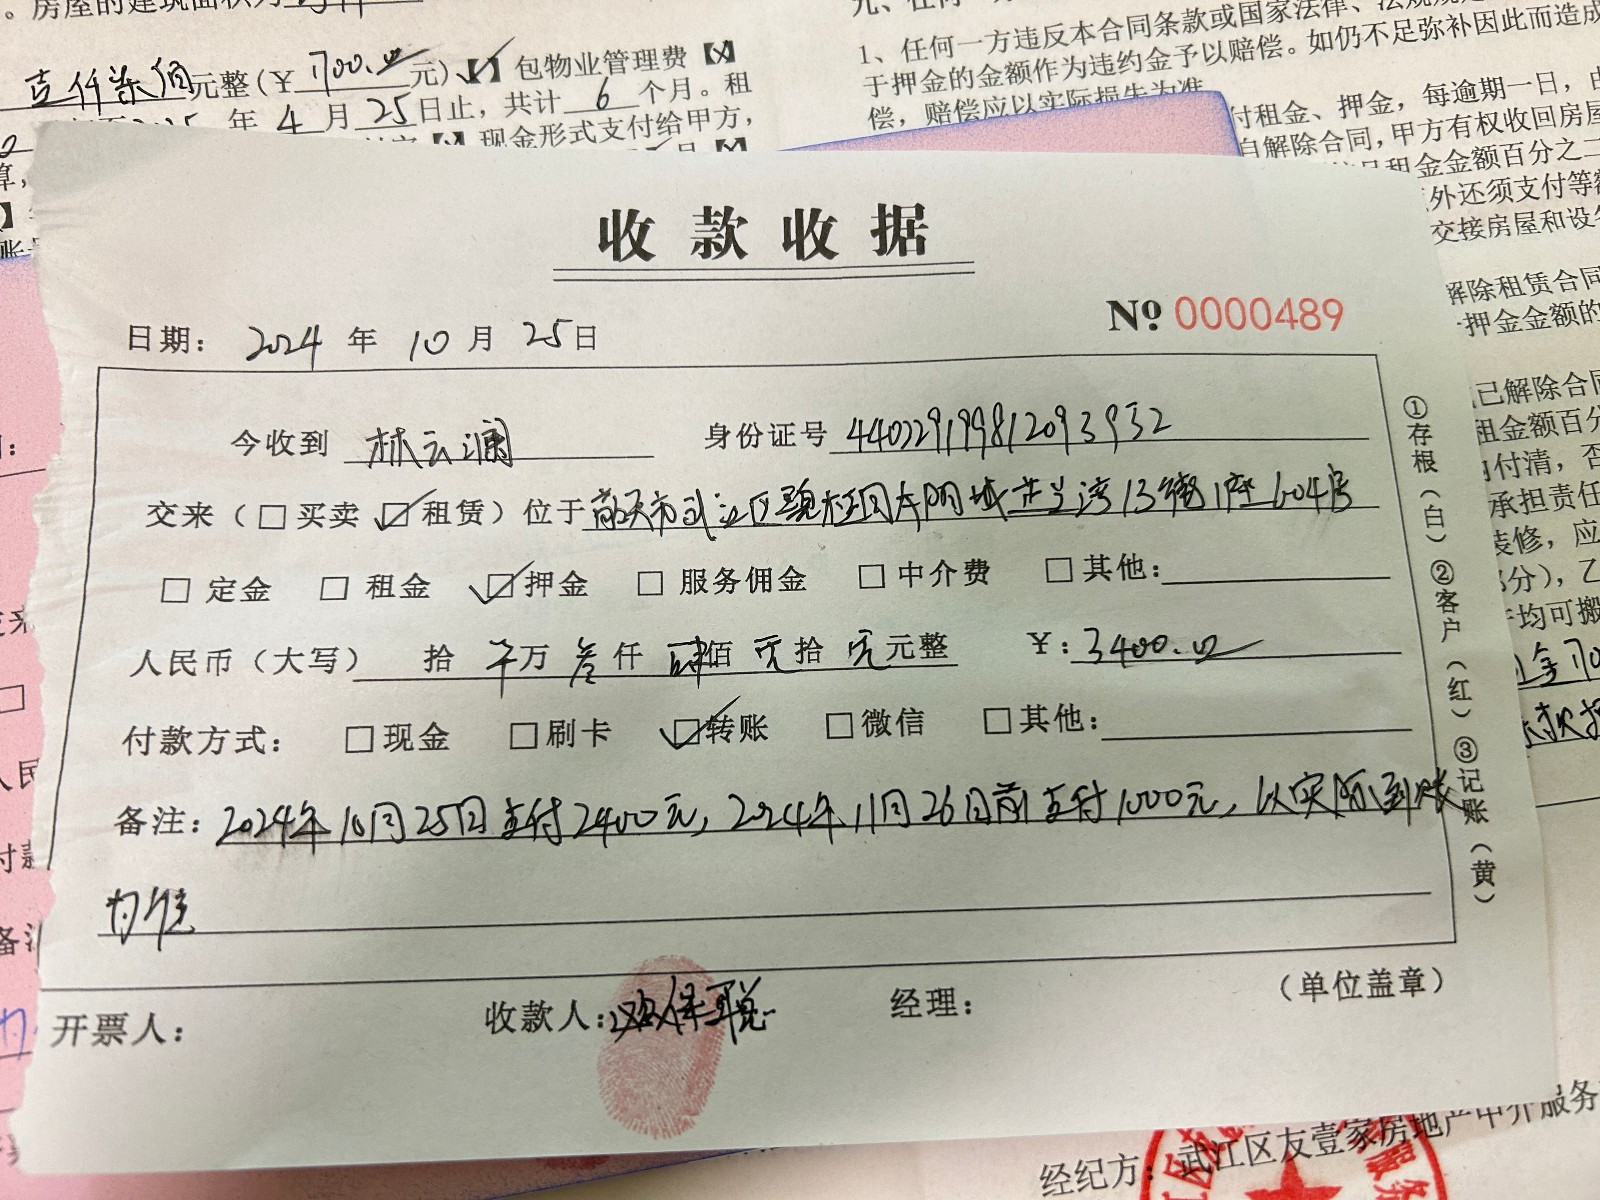 。房屋的建筑面积为
壹仟柒佰元整(￥1700.00元)【√】包物业管理费【×】
年4月25日止，共计6个月。租
【×】现金形式支付给甲方，
1、任何一方违反本合同条款或国家法律、法规规
于押金的金额作为违约金予以赔偿。如仍不足弥补因此而造成
偿，赔偿应以实际损失为准
付租金、押金，每逾期一日，
自解除合同，甲方有权收回房屋
租金金额百分之二
外还须支付等
交接房屋和设
解除租赁合同
押金金额的
已解除合同
租金额百分
付清，否
承担责任
装修，应
部分），乙
均可搬
收款收据
№ 0000489
日期：2024年10月25日
今收到 林云澜 身份证号 440229199812093932
交来（□买卖 ☑租赁）位于 市武江区 13 1座604房
□定金 □租金 ☑押金 □服务佣金 □中介费 □其他：
人民币（大写） 拾 万叁仟肆佰零拾零元整 ￥：3400.00
付款方式： □现金 □刷卡 ☑转账 □微信 □其他：
备注：2024年10月25日支付2400元，2024年11月26日前支付1000元，以实际到账
为准
开票人： 收款人： 保聪 经理： （单位盖章）
①存根（白）②客户（红）③记账（黄）
经纪方：武江区友壹家房地产中介服务